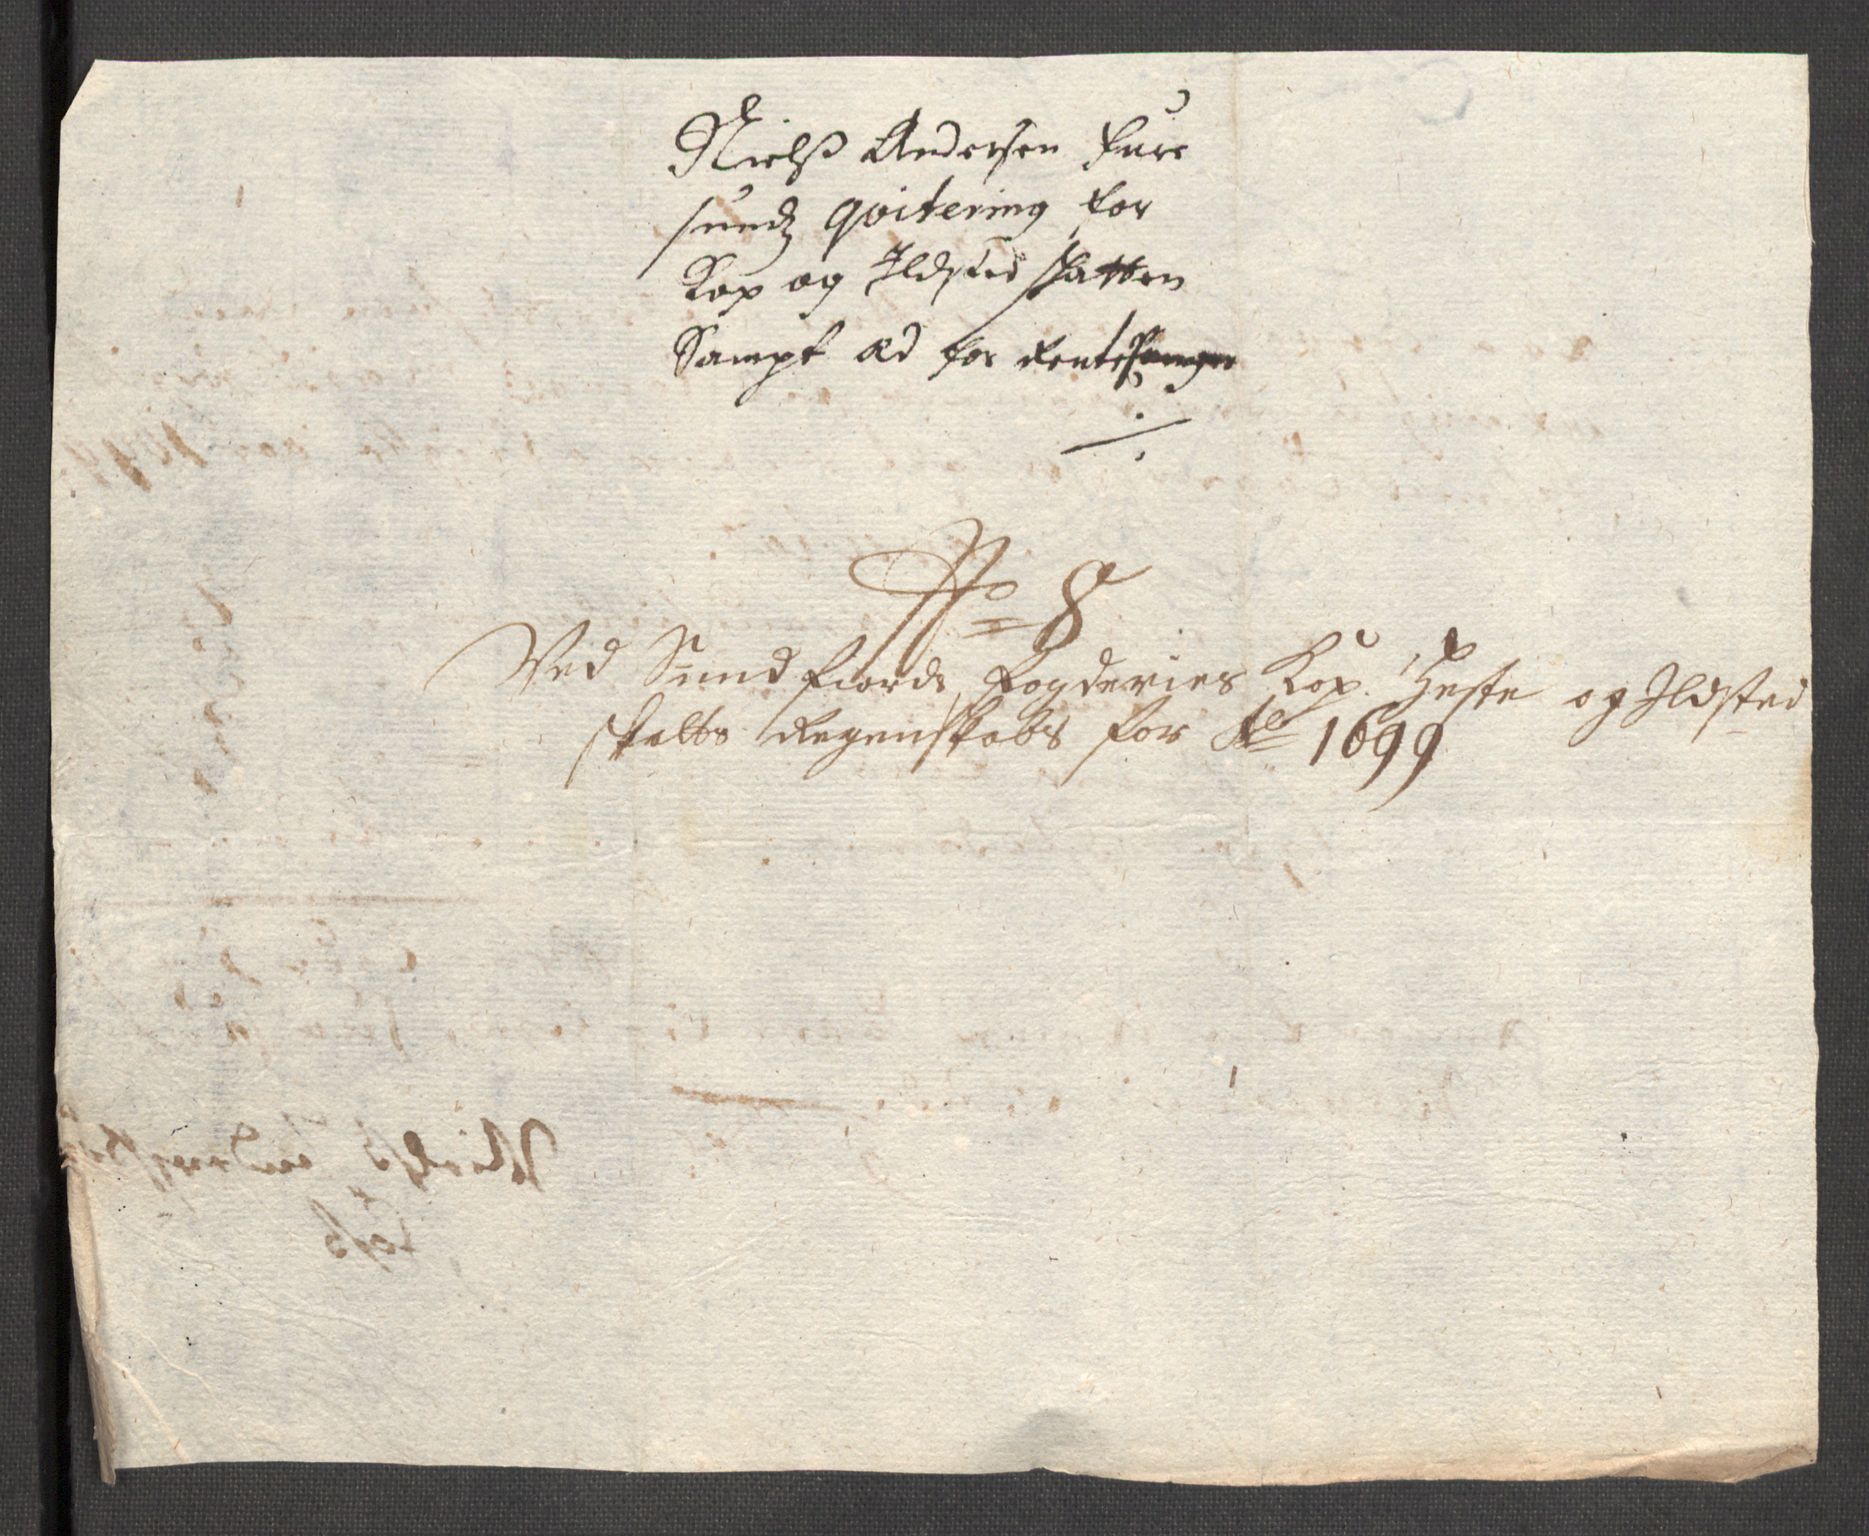 Nielß Andersen Fure
sundz qvitering for
Kop og Ildsted skatten
Sampt æd for Rentepenger
./.
No 8
Ved Sundfiords Fogderies Kop. Heste og Ildsted
skatts Regenskabs for Ao 1699